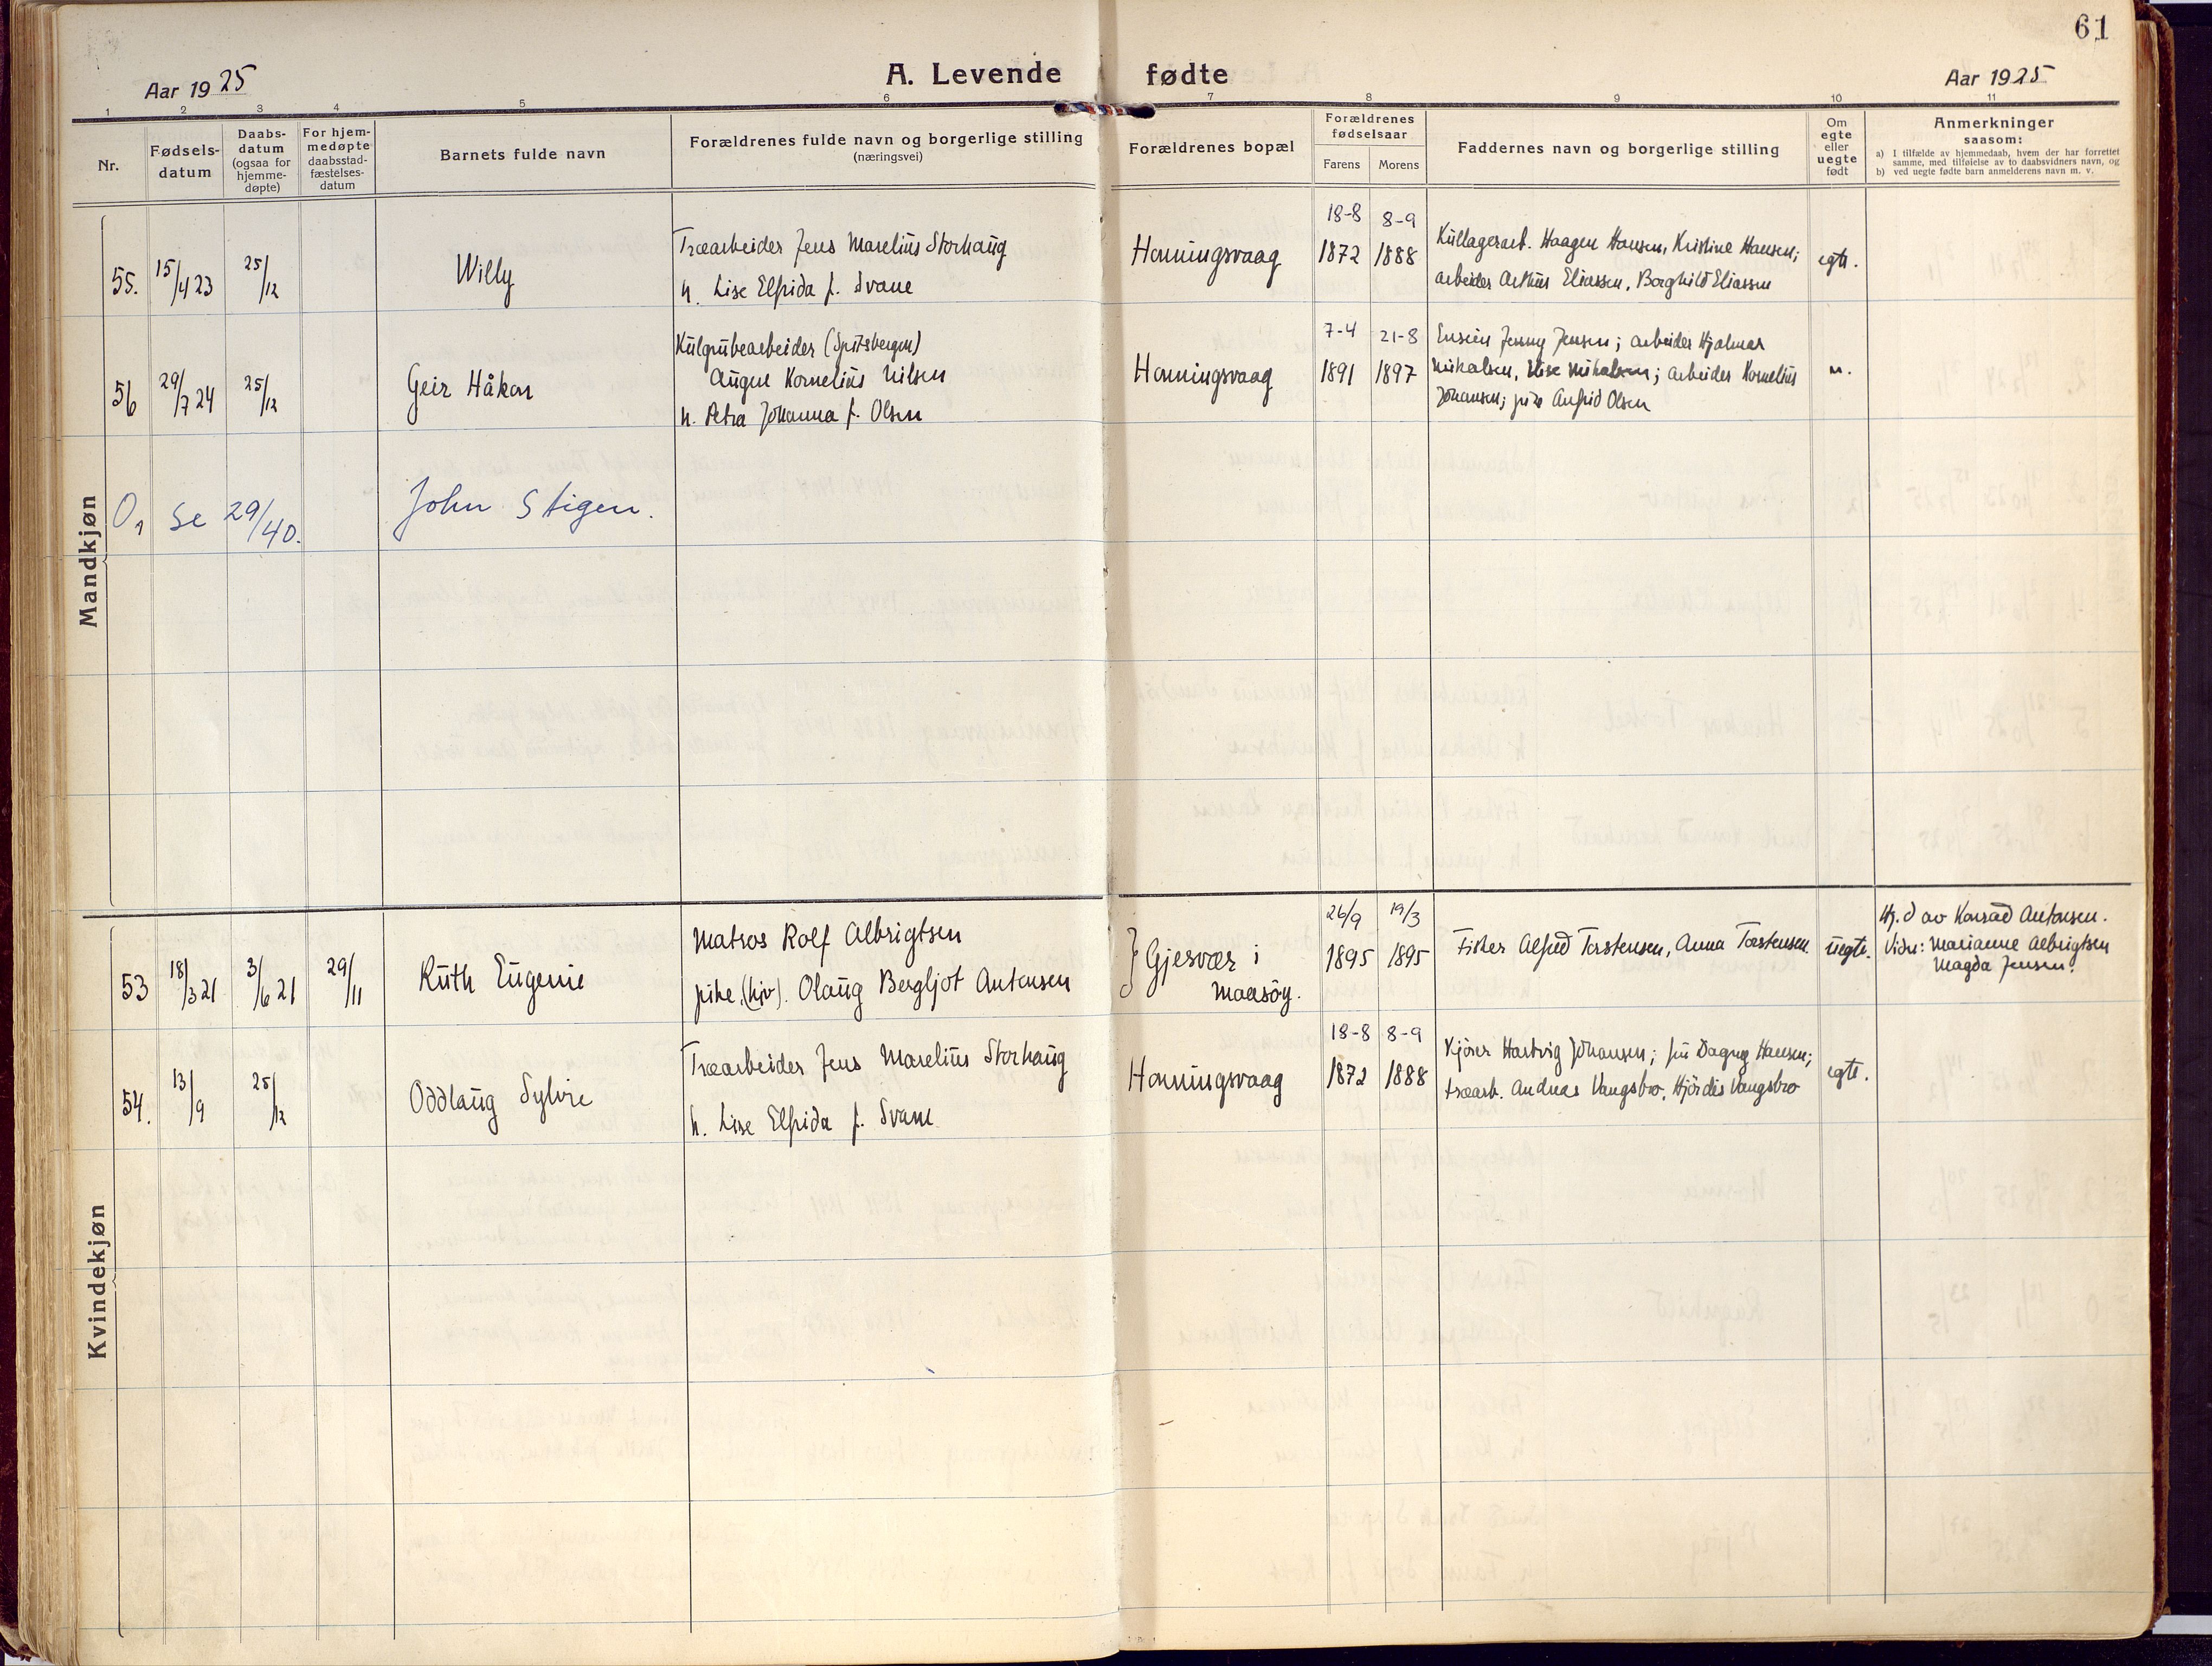 61
Aar 1925
A. Levende fødte
Aar 1925
1 2 3 4 5 6 7 8 9 10 11
Nr.
Fødsels-
datum
Daabs-
datum
(ogsaa for
hjemme-
døpte)
For hjem-
medøpte
daabsstad-
fæstelses-
datum
Barnets fulde navn
Forældrenes fulde navn og borgerlige stilling
(næringsvei)
Forældrenes bopæl
Forældrenes
fødselsaar
Farens
Morens
Faddernes navn og borgerlige stilling
Om
egte
eller
uegte
født
Anmerkninger
saasom:
a) I tilfælde av hjemmedaab, hvem der har forrettet
samme, med tilføielse av to daabsvidners navn, og
b) ved uegte fødte barn anmelderens navn m. v.
Mandkjøn
55. 15/4 23 25/12 Willy
Træarbeider Jens Marelius Storhaug
h. Lise Elfrida f. Svane
Honningsvaag
18-8 1872
8-9 1888
Kullagerarb. Haagen Hansen, Kristine Hansen;
arbeider Arthur Eliassen, Borghild Eliassen
egte.
56 29/7 24 25/12 Geir Håkon
Kulgrubearbeider (Spitsbergen)
August Kornelius Nilsen
h. Petra Johanna f. Olsen
Honningsvaag
7-4 1891
21-8 1897
Jenny Jensen; arbeider Hjalmar
Mikalsen, Mikalsen; arbeider Kornelius
Johansen; pike Olsen
".
O, se 29/40. John Stigen.
Kvindekjøn
53 18/3 21 3/6 21 29/11 Ruth Eugenie
Matros Rolf Albrigtsen
pike, (hjv). Olaug Bergljot Antonsen
} Gjesvær i
Maasöy.
26/9 1895
19/3 1895
Fisker Alfred Torstensen, Anna Torstensen.
uegte.
Hj. d av Konrad Antonsen.
Vidn: Marianne Albrigtsen
Magda Jensen.
54. 13/9 25/12 Oddlaug Sylvie
Træarbeider Jens Marelius Storhaug
h. Lise Elfrida f. Svane
Honningsvaag
18-8 1872
8-9 1888
Kjörer Hartvig Johansen; fru Dagny Hansen;
træarb. Andreas Vangsbro, Hjördis Vangsbro
egte.